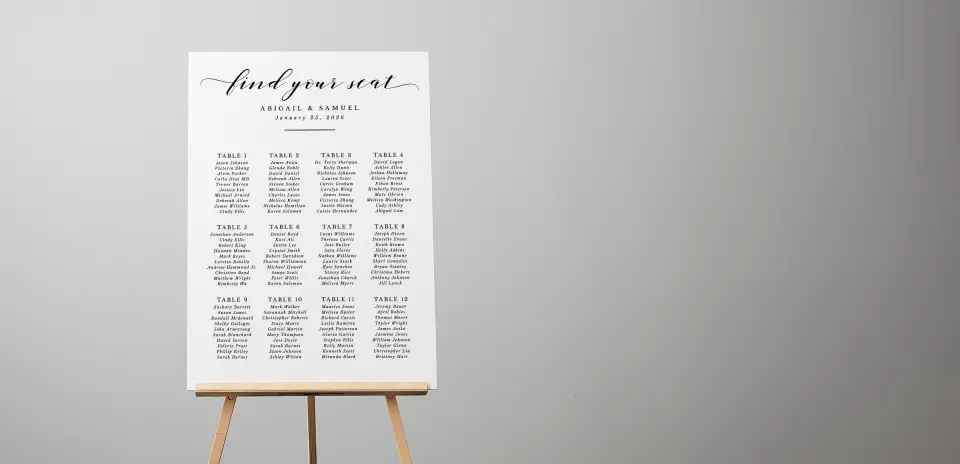 find your seat
ABIGAIL & SAMUEL
January 25, 2026
TABLE 1
Jason Johnson
Victoria Zhang
Alvin Parker
Carla Diaz MD
Trevor Barton
Jessica Lin
Michael Arnold
Deborah Allen
James Williams
Cindy Ellis
TABLE 2
James Avila
Glenda Noble
David Daniel
Deborah Allen
Steven Stokes
Melissa Allen
Charles Lucas
Melissa Kemp
Nicholas Hamilton
Karen Solomon
TABLE 3
Dr. Terry Sherman
Kelly Dunn
Nicholas Johnson
Lauren Scott
Curtis Graham
Carolyn Wong
James Jones
Victoria Zhang
Justin Barton
Cassie Hernandez
TABLE 4
David Logan
Ashlee Allen
Joshua Holloway
Eileen Freeman
Ethan Brost
Kimberly Peterson
Marc Obrien
Melissa Washington
Cody Ashley
Abigail Lam
TABLE 5
Jonathan Anderson
Cindy Ellis
Robert King
Hannah Mendez
Mark Reyes
Loretta Bonilla
Andrew Hammond Jr.
Christine Boyd
Matthew Wright
Kimberly Wu
TABLE 6
Daniel Boyd
Kari Ali
Justin Lee
Crystal Smith
Robert Davidson
Sharon Williamson
Michael Howell
Sonya Scott
Peter Willis
Karen Solomon
TABLE 7
Lucas Williams
Theresa Curtis
Jose Butler
Sara Flores
Nathan Williams
Laurie Stark
Kyle Sanchez
Stacey Rice
Jonathan Church
Melissa Myers
TABLE 8
Joseph Dixon
Danielle Evans
Keith Brown
Holly Adkins
William Boone
Shari Gonzalez
Bryan Stanley
Christina Hobers
Anthony Johnson
Jill Lynch
TABLE 9
Zachary Barrett
Susan Jones
Randall Mcdonald
Shelby Gallegos
John Armstrong
Sarah Blanchard
David Saxton
Valerie Pratt
Phillip Kelley
Sarah Barnes
TABLE 10
Mark Walker
Savannah Mitchell
Christopher Roberts
Stacy Moore
Gabriel Martin
Mary Thompson
Jose Doyle
Sarah Barnes
Jason Johnson
Ashley Wilson
TABLE 11
Maurice Jones
Melissa Butler
Richard Curtis
Leslie Ramirez
Joseph Patterson
Gloria Garcia
Stephen Ellis
Kelly Martin
Kenneth Scott
Miranda Black
TABLE 12
Jeremy Bauer
April Robles
Thomas Moore
Taylor Wright
James Avila
Jasmine Jones
William Johnson
Taylor Glenn
Christopher Liu
Brittney Hart